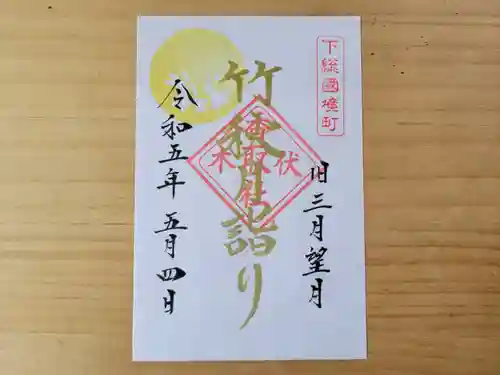 下総國境町
旧三月望月
竹秋月詣り
伏木
香取社
令和五年 五月四日